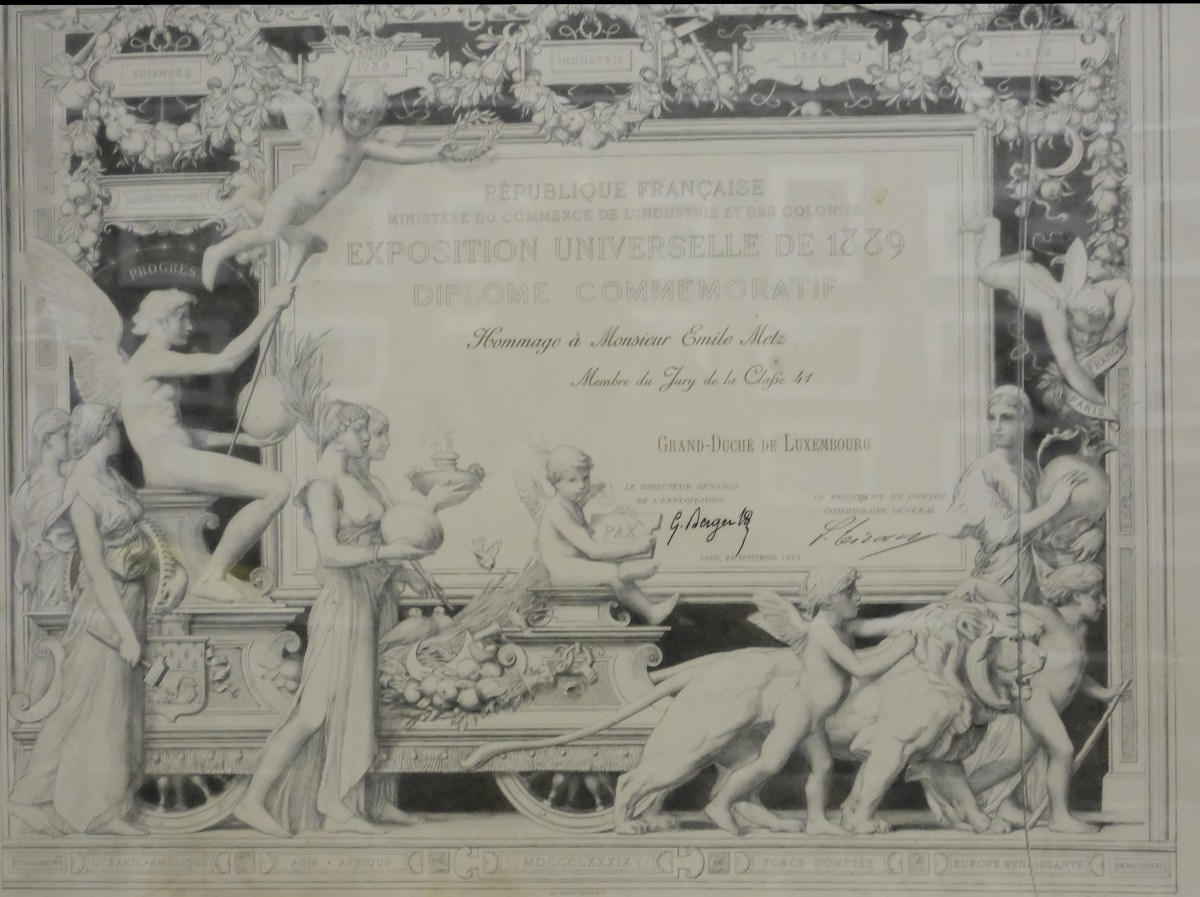 SCIENCES
1789
INDUSTRIE
1889
ARTS
AGRICULTURE
PROGRES
RÉPUBLIQUE FRANÇAISE
MINISTÈRE DU COMMERCE DE L'INDUSTRIE ET DES COLONIES
EXPOSITION UNIVERSELLE DE 1889
DIPLOME COMMEMORATIF
Hommage à Monsieur Emile Metz
Membre du Jury de la Claſse 41
GRAND-DUCHÉ DE LUXEMBOURG
LE DIRECTEUR GENERAL
DE L'EXPLOITATION
G. Berger
LE PRÉSIDENT DU CONSEIL
COMMISSAIRE GENERAL
PARIS, 29 SEPTEMBRE 1889
PAX
FRANCE
PARIS
OCÉANIE · AMÉRIQUE
ASIE · AFRIQUE
MDCCCLXXXIX
FORCE DOMPTÉE
EUROPE RENAISSANTE